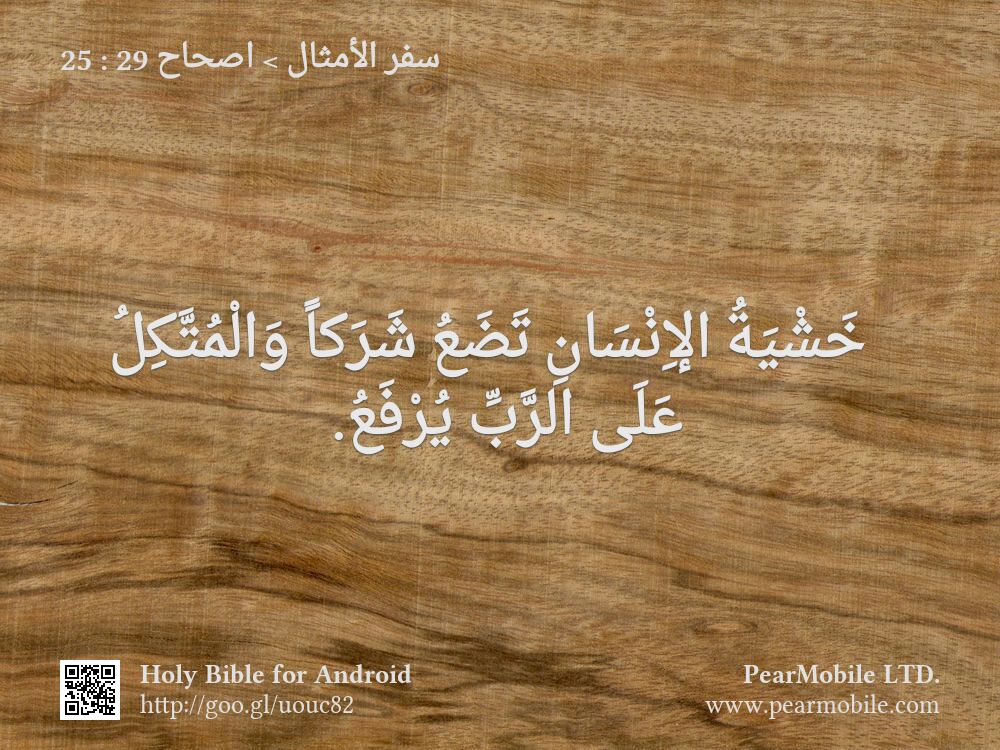 سفر الأمثال > اصحاح 29 : 25
خَشْيَةُ الإِنْسَانِ تَضَعُ شَرَكاً وَالْمُتَّكِلُ
عَلَى الرَّبِّ يُرْفَعُ.
Holy Bible for Android
http://goo.gl/uouc82
PearMobile LTD.
www.pearmobile.com